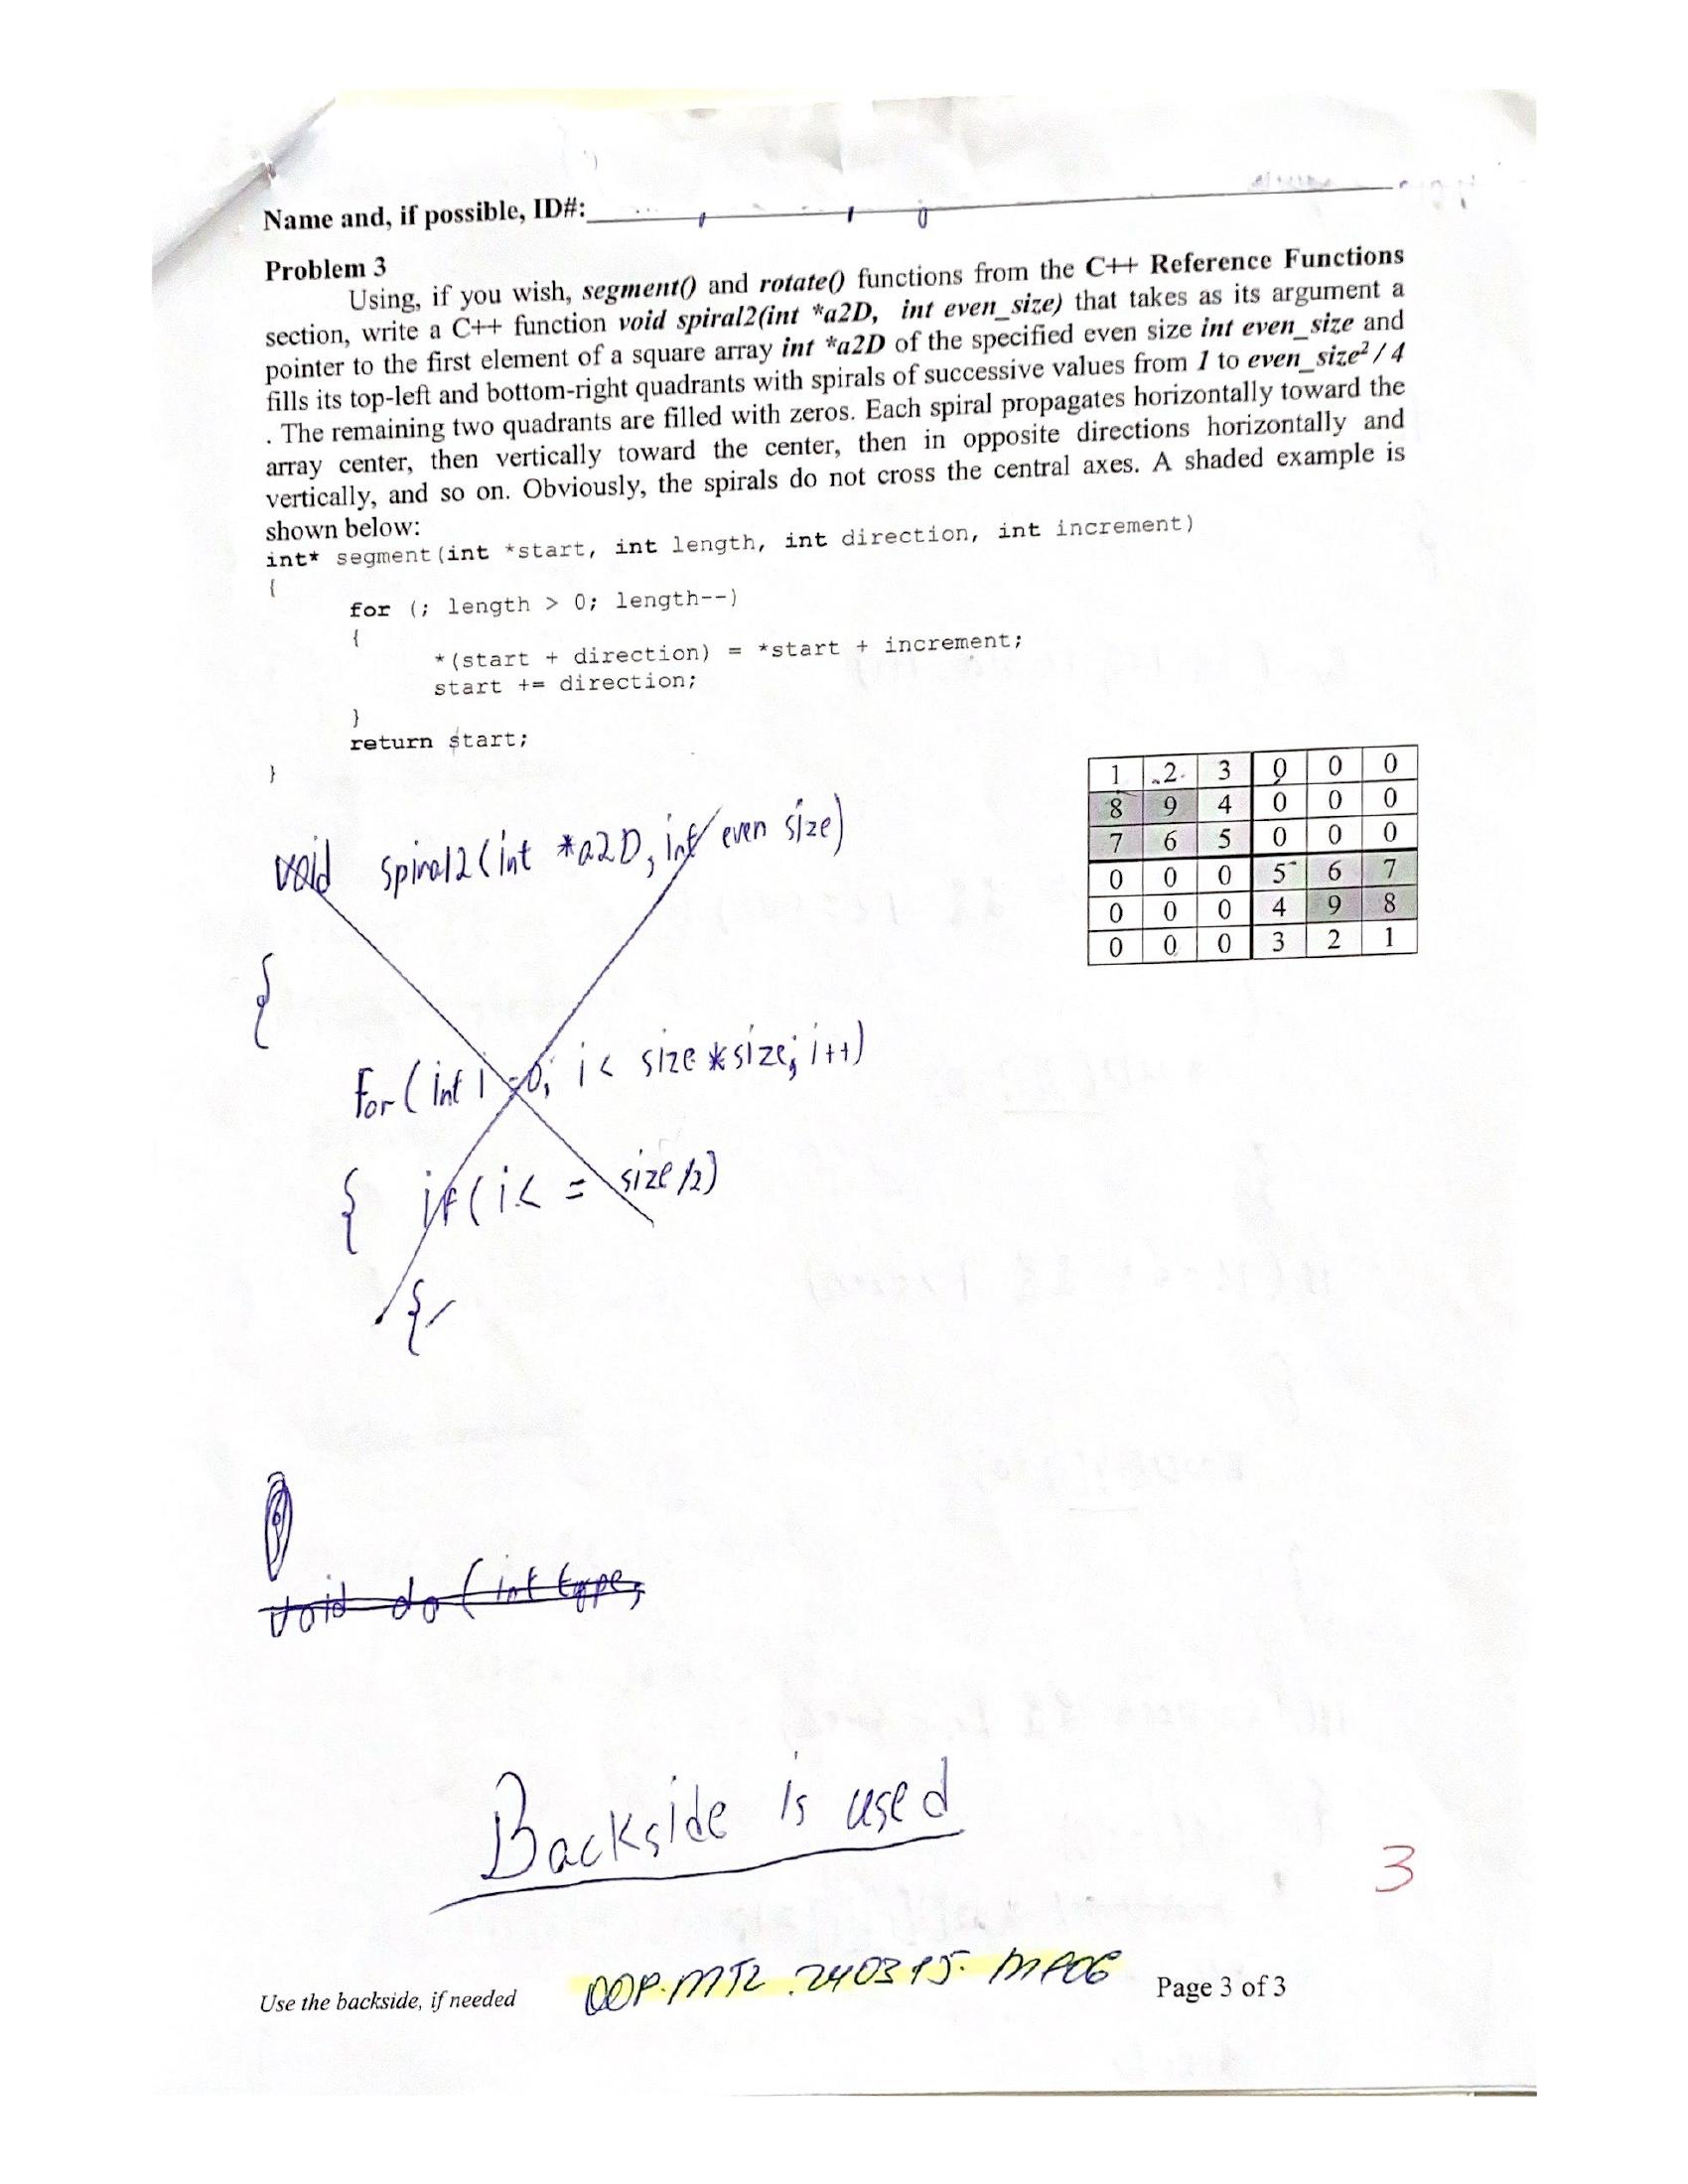 Name and, if possible, ID#:
Problem 3
Using, if you wish, segment() and rotate() functions from the C++ Reference Functions
section, write a C++ function void spiral2(int *a2D, int even_size) that takes as its argument a
pointer to the first element of a square array int *a2D of the specified even size int even_size and
fills its top-left and bottom-right quadrants with spirals of successive values from 1 to even_size² / 4
. The remaining two quadrants are filled with zeros. Each spiral propagates horizontally toward the
array center, then vertically toward the center, then in opposite directions horizontally and
vertically, and so on. Obviously, the spirals do not cross the central axes. A shaded example is
shown below:
int* segment(int *start, int length, int direction, int increment)
{
for (; length > 0; length--)
{
*(start + direction) = *start + increment;
start += direction;
}
return start;
}
1 2 3 0 0 0
8 9 4 0 0 0
7 6 5 0 0 0
0 0 0 5 6 7
0 0 0 4 9 8
0 0 0 3 2 1
void spiral2(int *a2D, int even size)
{
for(int i=0; i< size*size; i++)
{ if(i< = size/2)
{
void do(int type,
Backside is used
3
Use the backside, if needed
OOP.MT2.240315.MP06
Page 3 of 3